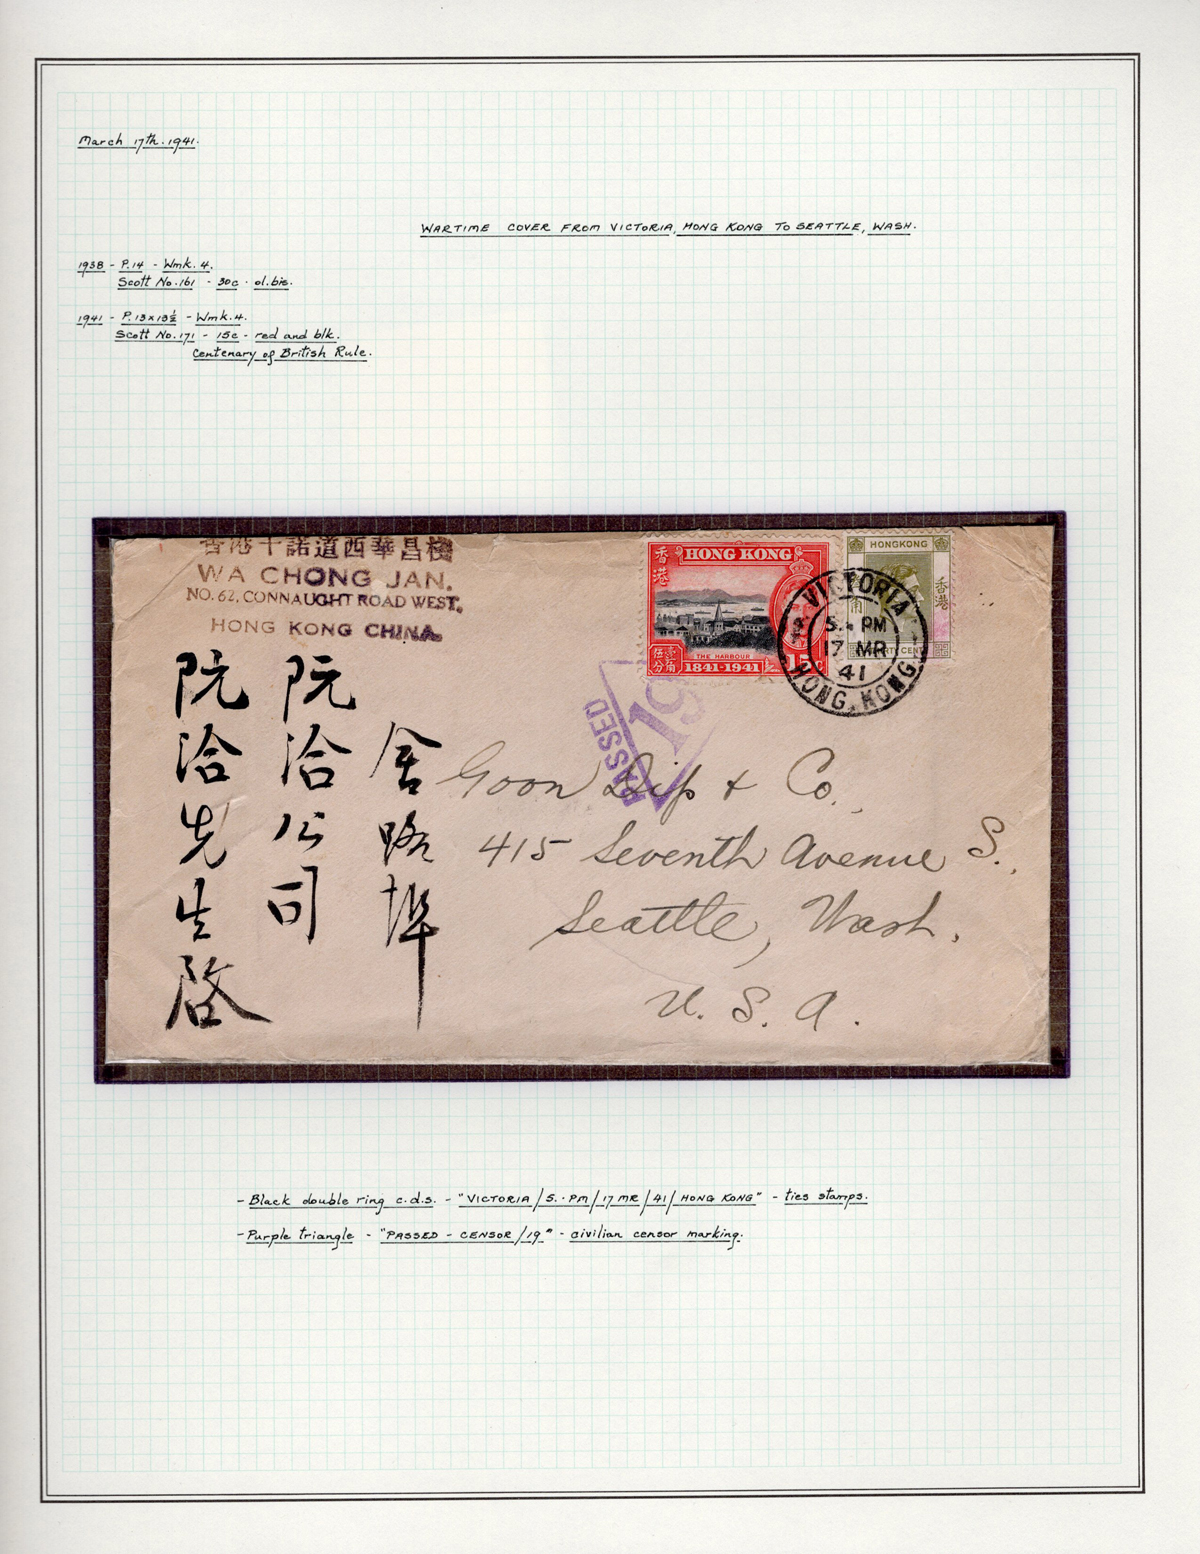 March 17th. 1941.
WARTIME COVER FROM VICTORIA, HONG KONG TO SEATTLE, WASH.
1938 - P.14 - Wmk. 4.
Scott No. 161 - 30c - ol. bis.
1941 - P. 13 x 13½ - Wmk. 4.
Scott No. 171 - 15c - red and blk.
Centenary of British Rule.
香港干諾道西華昌棧
WA CHONG JAN.
NO. 62, CONNAUGHT ROAD WEST,
HONG KONG CHINA.
香港
HONG KONG
THE HARBOUR
1841-1941
15c
壹角
伍分
HONGKONG
香港
角
THIRTY CENTS
VICTORIA
5. PM
17 MR
41
HONG KONG
PASSED
19
舍路埠
阮洽公司
阮洽先生啓
Goon Dip & Co.,
415 Seventh Avenue S.,
Seattle, Wash.
U. S. A.
- Black double ring c.d.s. - "VICTORIA / 5. · PM / 17 MR / 41 / HONG KONG" - ties stamps.
- Purple triangle - "PASSED - CENSOR / 19" - civilian censor marking.